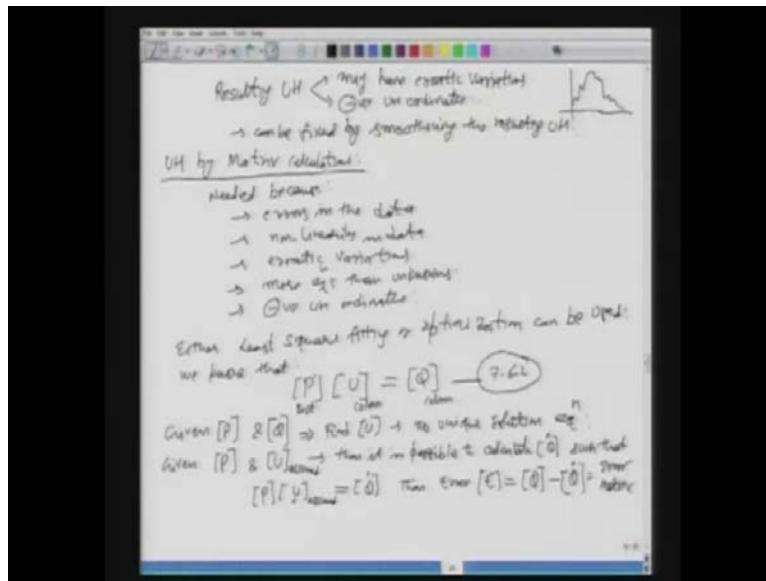 Resulting UH < may have erratic variations
→ ⊖ve UH ordinates
→ can be fixed by smoothening the resulting UH.
UH by Matrix calculations:
Needed because:
→ errors in the data
→ non linearity in data
→ erratic variations
→ more eqns than unknowns
→ ⊖ve UH ordinates
Either Least Square fitting or optimization can be used:
we know that:
[P] [U] = [Q] — 7.62
column column
Given [P] & [Q] ⇒ Find [U] → no unique solution eqn
Given [P] & [U]assumed → then it is possible to calculate [Q̂] such that
[P][U]assumed = [Q̂] Then Error [ε] = [Q] - [Q̂] = Error matrix